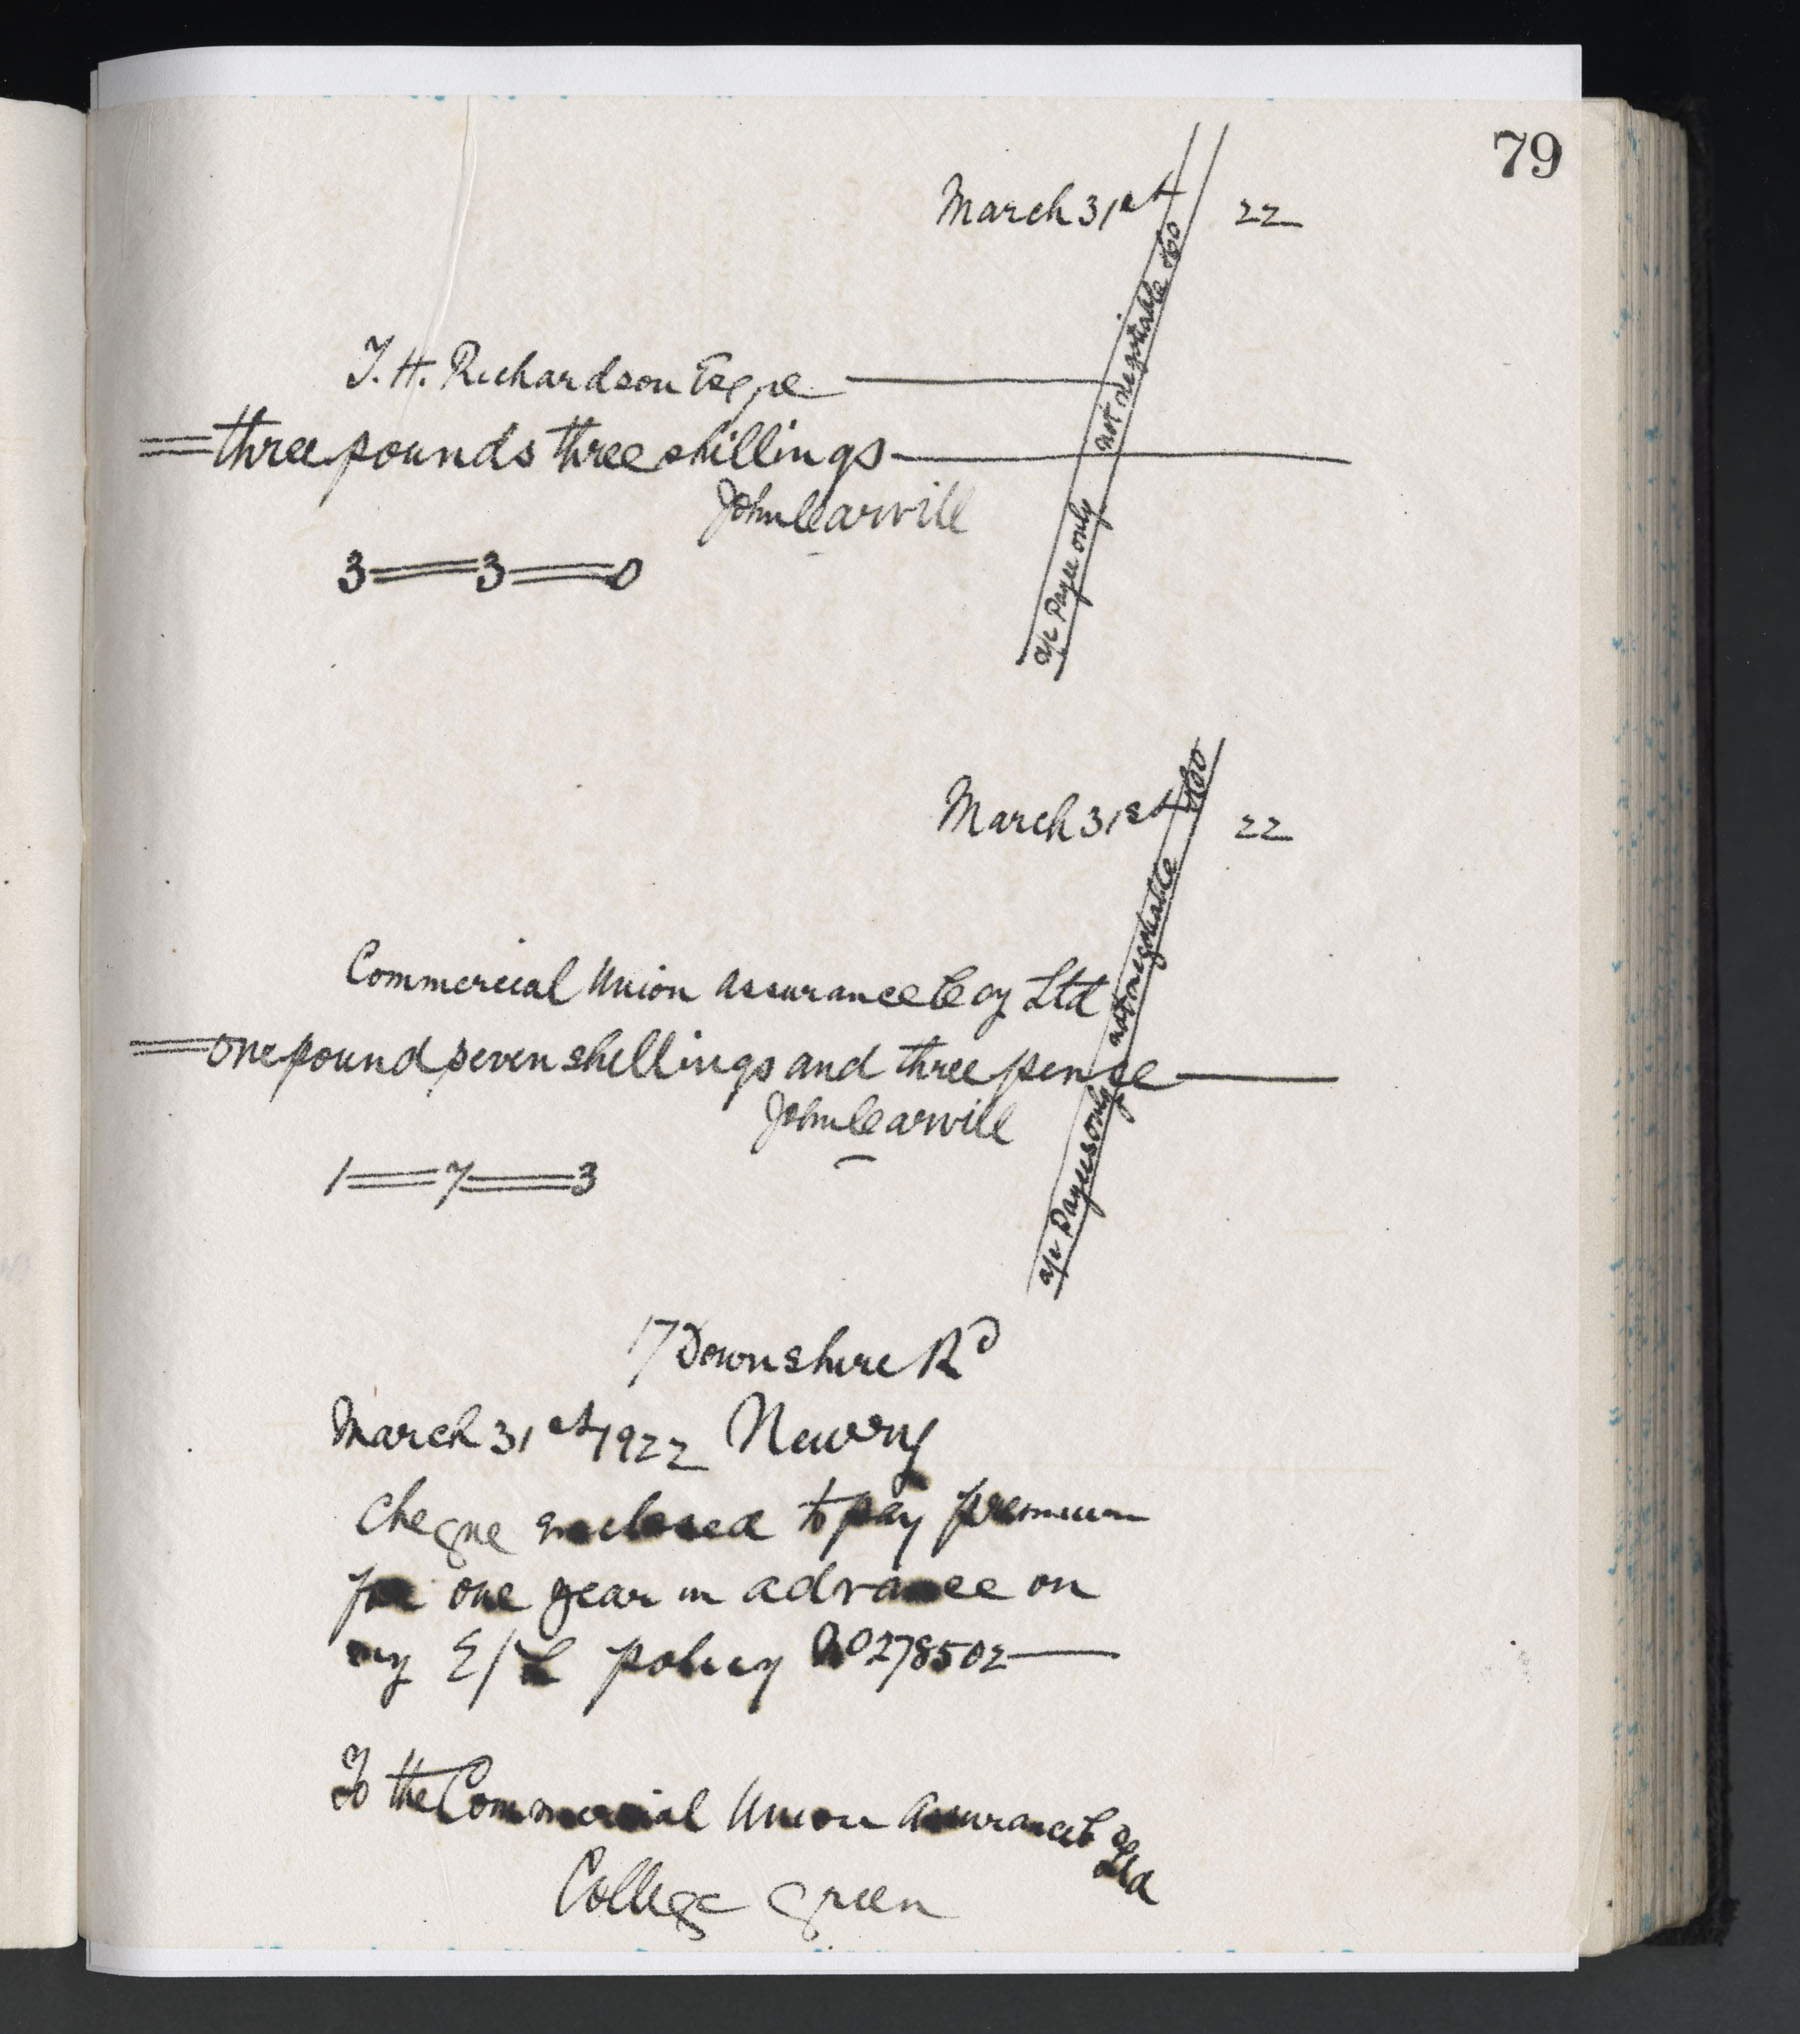 79
March 31st 22
T. H. Richardson Esqre
three pounds three shillings
John Carvill
3 3 0
a/c Payee only not negotiable & Co
March 31st 22
Commercial Union Assurance Coy Ltd
one pound seven shillings and three pence
John Carvill
1 7 3
a/c Payees only not negotiable & Co
17 Downshire Rd
March 31st 1922 Newry
Cheque enclosed to pay premium
for one year in advance on
my E/L policy No 278502
To the Commercial Union Assurance Co Ltd
College Green